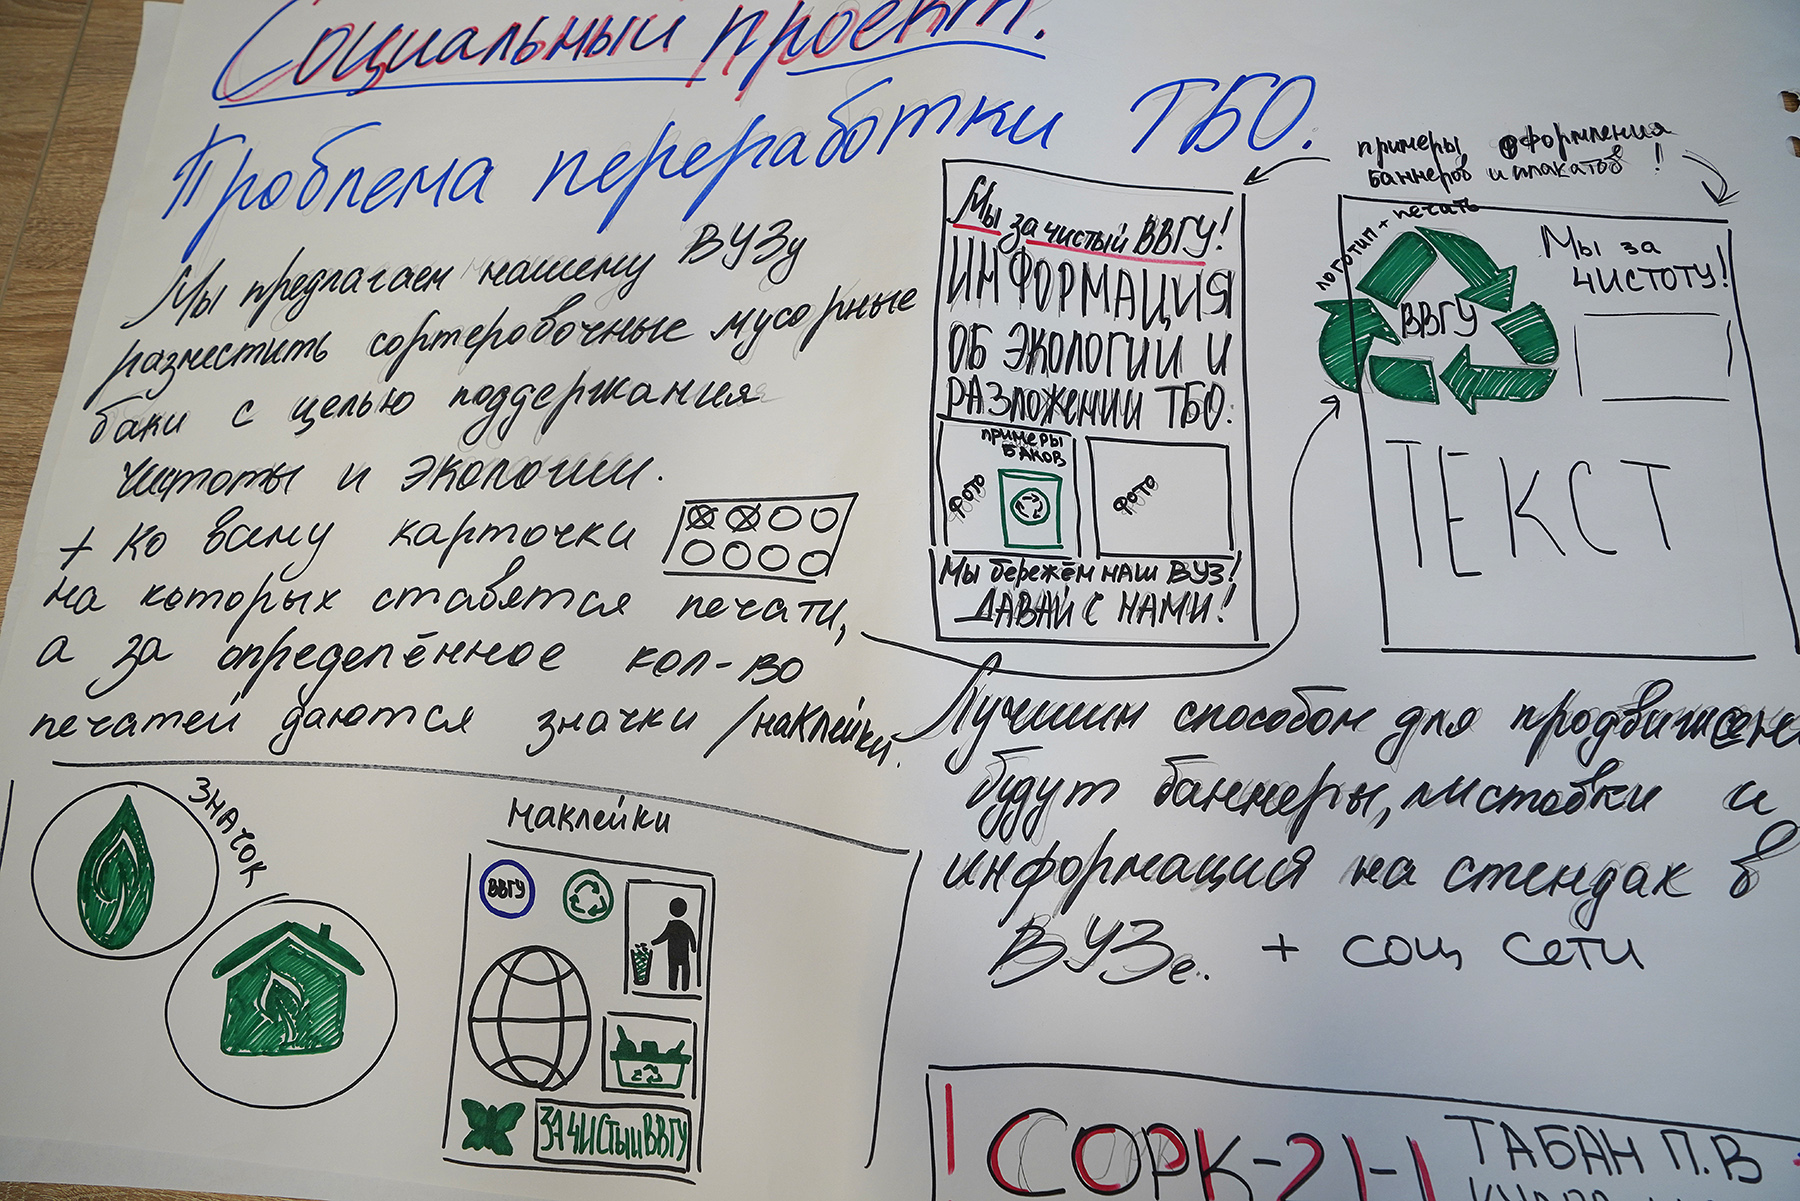 Социальный проект.
Проблема переработки ТБО.
Мы предлагаем нашему ВУЗу
разместить сортеровочные мусорные
баки с целью поддержания
чистоты и экологии.
+ ко всему карточки
на которых ставятся печати,
а за определённое кол-во
печатей даются значки /наклейки.
примеры оформления
баннеров и плакатов!
Мы за чистый ВВГУ!
ИНФОРМАЦИЯ
ОБ ЭКОЛОГИИ И
РАЗЛОЖЕНИИ ТБО:
примеры
баков
фото
фото
Мы бережём наш ВУЗ!
ДАВАЙ С НАМИ!
логотип + печать
ВВГУ
Мы за
чистоту!
ТЕКСТ
Лучшим способом для
будут баннеры, листовки и
информация на стендах в
ВУЗе. + соц сети
значок
наклейки
ВВГУ
ЗА ЧИСТЫЙ ВВГУ
СОРК-21-1
ТАБАН П.В